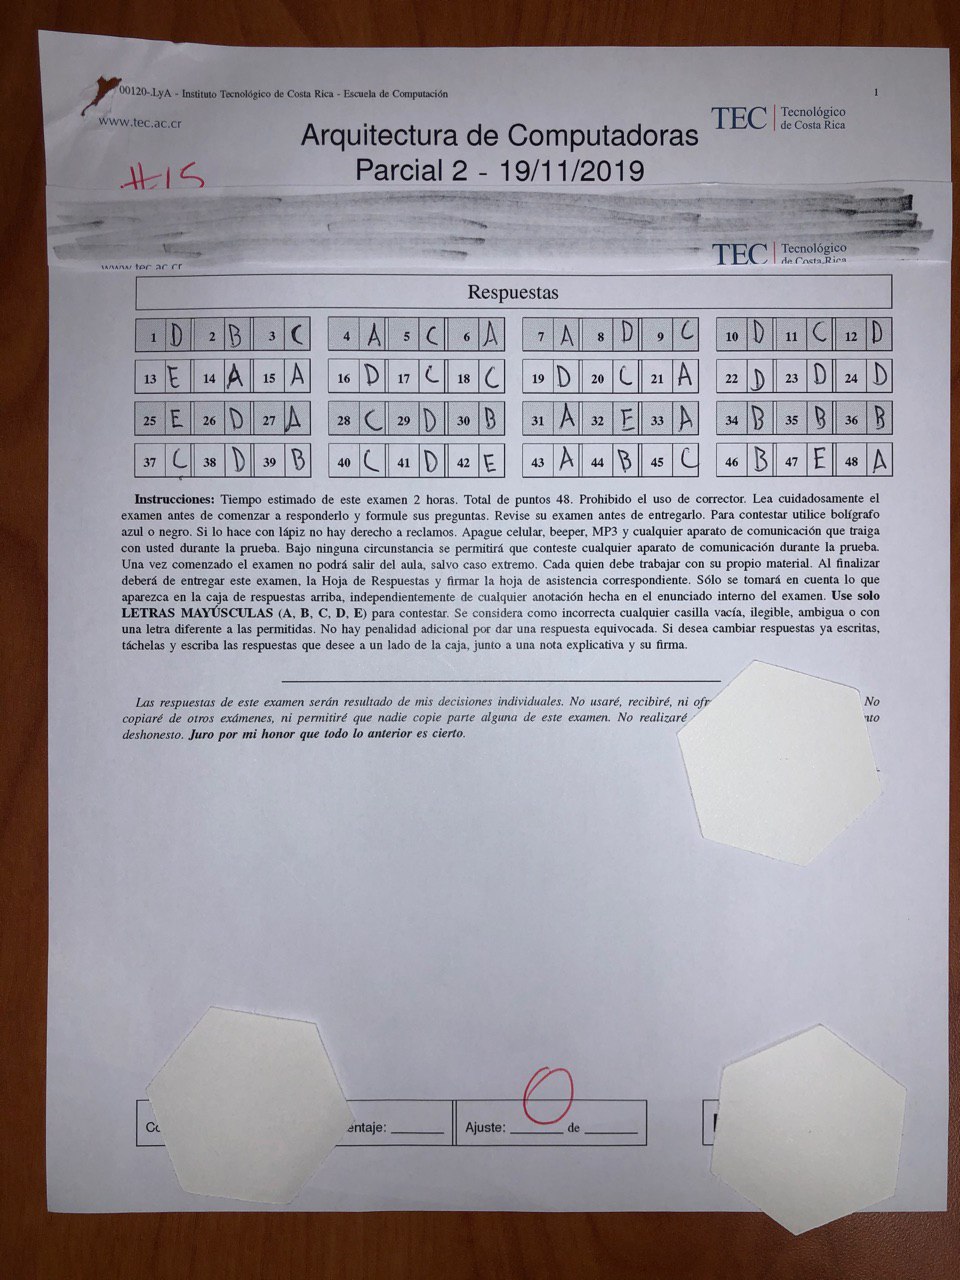 00120-.LyA - Instituto Tecnológico de Costa Rica - Escuela de Computación 1
www.tec.ac.cr
TEC Tecnológico de Costa Rica
Arquitectura de Computadoras
Parcial 2 - 19/11/2019
#15
TEC Tecnológico
de Costa Rica
www.tec.ac.cr
Respuestas
1 D 2 B 3 C 4 A 5 C 6 A 7 A 8 D 9 C 10 D 11 C 12 D
13 E 14 A 15 A 16 D 17 C 18 C 19 D 20 C 21 A 22 D 23 D 24 D
25 E 26 D 27 A 28 C 29 D 30 B 31 A 32 E 33 A 34 B 35 B 36 B
37 C 38 D 39 B 40 C 41 D 42 E 43 A 44 B 45 C 46 B 47 E 48 A
Instrucciones: Tiempo estimado de este examen 2 horas. Total de puntos 48. Prohibido el uso de corrector. Lea cuidadosamente el
examen antes de comenzar a responderlo y formule sus preguntas. Revise su examen antes de entregarlo. Para contestar utilice bolígrafo
azul o negro. Si lo hace con lápiz no hay derecho a reclamos. Apague celular, beeper, MP3 y cualquier aparato de comunicación que traiga
con usted durante la prueba. Bajo ninguna circunstancia se permitirá que conteste cualquier aparato de comunicación durante la prueba.
Una vez comenzado el examen no podrá salir del aula, salvo caso extremo. Cada quien debe trabajar con su propio material. Al finalizar
deberá de entregar este examen, la Hoja de Respuestas y firmar la hoja de asistencia correspondiente. Sólo se tomará en cuenta lo que
aparezca en la caja de respuestas arriba, independientemente de cualquier anotación hecha en el enunciado interno del examen. Use solo
LETRAS MAYÚSCULAS (A, B, C, D, E) para contestar. Se considera como incorrecta cualquier casilla vacía, ilegible, ambigua o con
una letra diferente a las permitidas. No hay penalidad adicional por dar una respuesta equivocada. Si desea cambiar respuestas ya escritas,
táchelas y escriba las respuestas que desee a un lado de la caja, junto a una nota explicativa y su firma.
Las respuestas de este examen serán resultado de mis decisiones individuales. No usaré, recibiré, ni No
copiaré de otros exámenes, ni permitiré que nadie copie parte alguna de este examen. No realizaré
deshonesto. Juro por mi honor que todo lo anterior es cierto.
0
Ajuste: ______ de ______